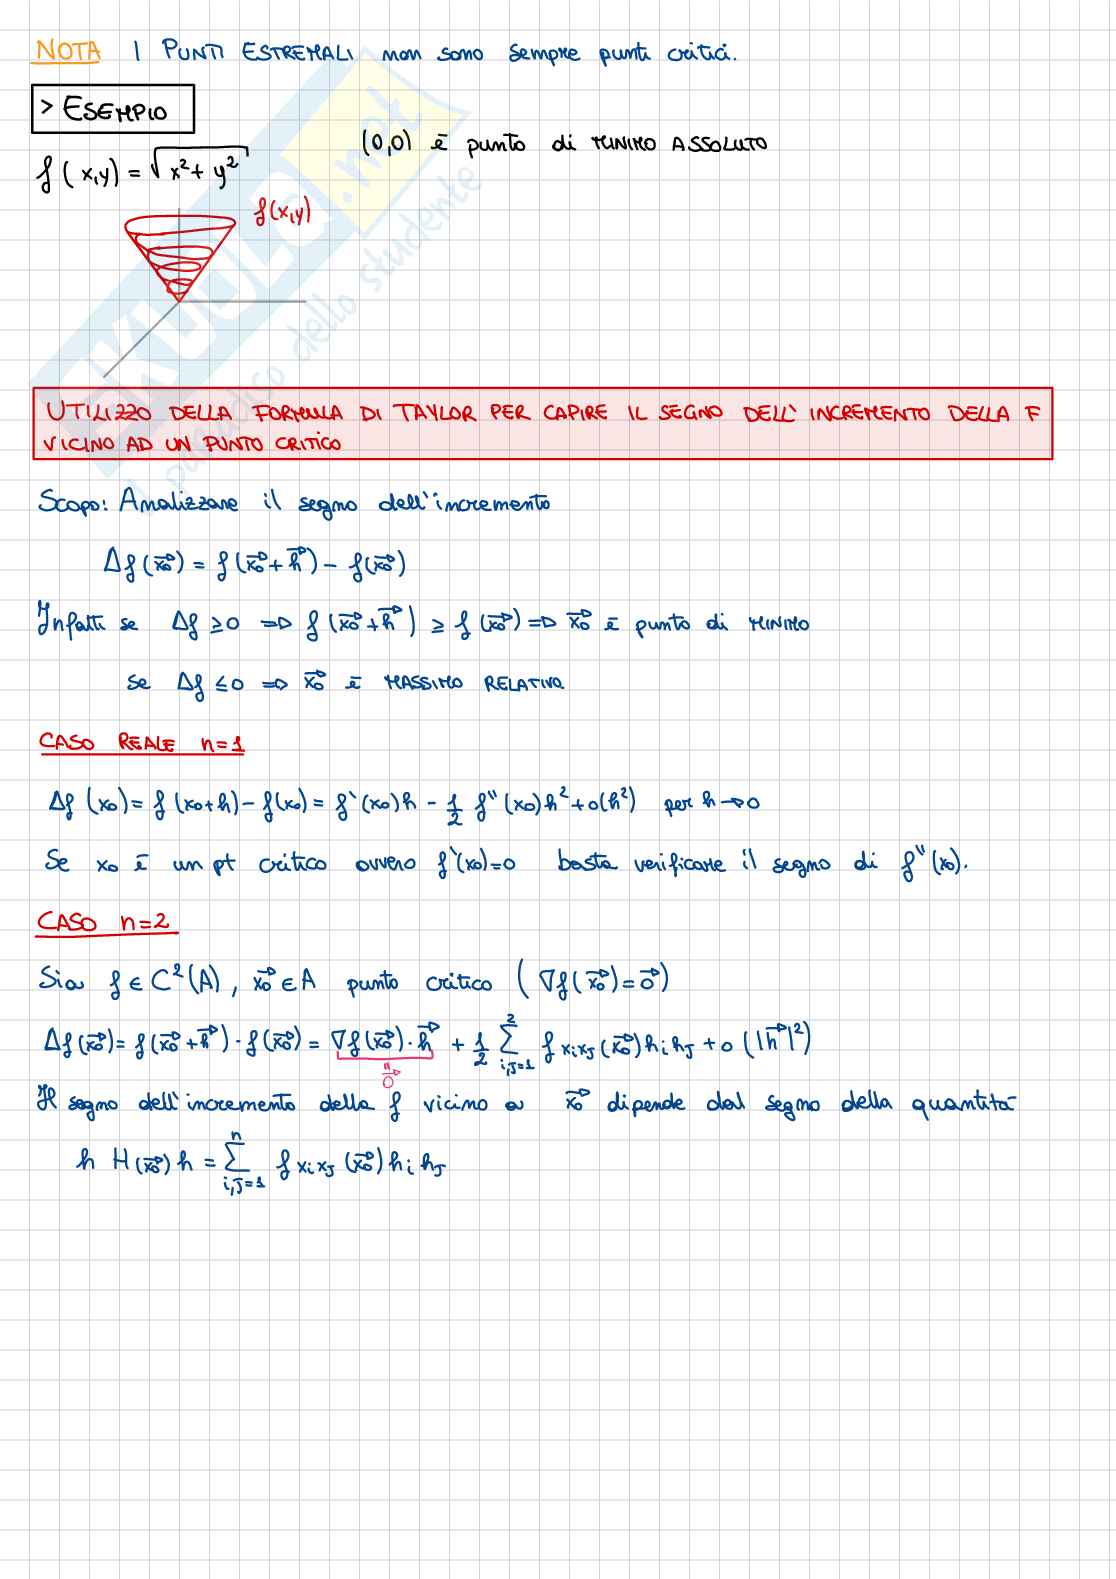 NOTA I PUNTI ESTREMALI non sono sempre punti critici.
> ESEMPIO
(0,0) è punto di MINIMO ASSOLUTO
f(x,y) = √x²+y²
f(x,y)
SKUOLA.net
il paradiso dello studente
UTILIZZO DELLA FORMULA DI TAYLOR PER CAPIRE IL SEGNO DELL'INCREMENTO DELLA F
VICINO AD UN PUNTO CRITICO
Scopo: Analizzare il segno dell'incremento
Δf(x₀⃗) = f(x₀⃗+h⃗) - f(x₀⃗)
Infatti se Δf ≥ 0 => f(x₀⃗+h⃗) ≥ f(x₀⃗) => x₀⃗ è punto di MINIMO
se Δf ≤ 0 => x₀⃗ è MASSIMO RELATIVO.
CASO REALE n=1
Δf(x₀) = f(x₀+h) - f(x₀) = f'(x₀)h - 1/2 f''(x₀)h² + o(h²) per h→0
Se x₀ è un pt critico ovvero f'(x₀)=0 basta verificare il segno di f''(x₀).
CASO n=2
Sia f ∈ C²(A), x₀⃗ ∈ A punto critico (∇f(x₀⃗)=0⃗)
Δf(x₀⃗) = f(x₀⃗+h⃗) - f(x₀⃗) = ∇f(x₀⃗)·h⃗ + 1/2 Σ²i,j=1 fxixj(x₀⃗)hihj + o(|h⃗|²)
" 0⃗
Il segno dell'incremento della f vicino a x₀⃗ dipende dal segno della quantità
h H(x₀⃗)h = Σⁿi,j=1 fxixj(x₀⃗)hihj